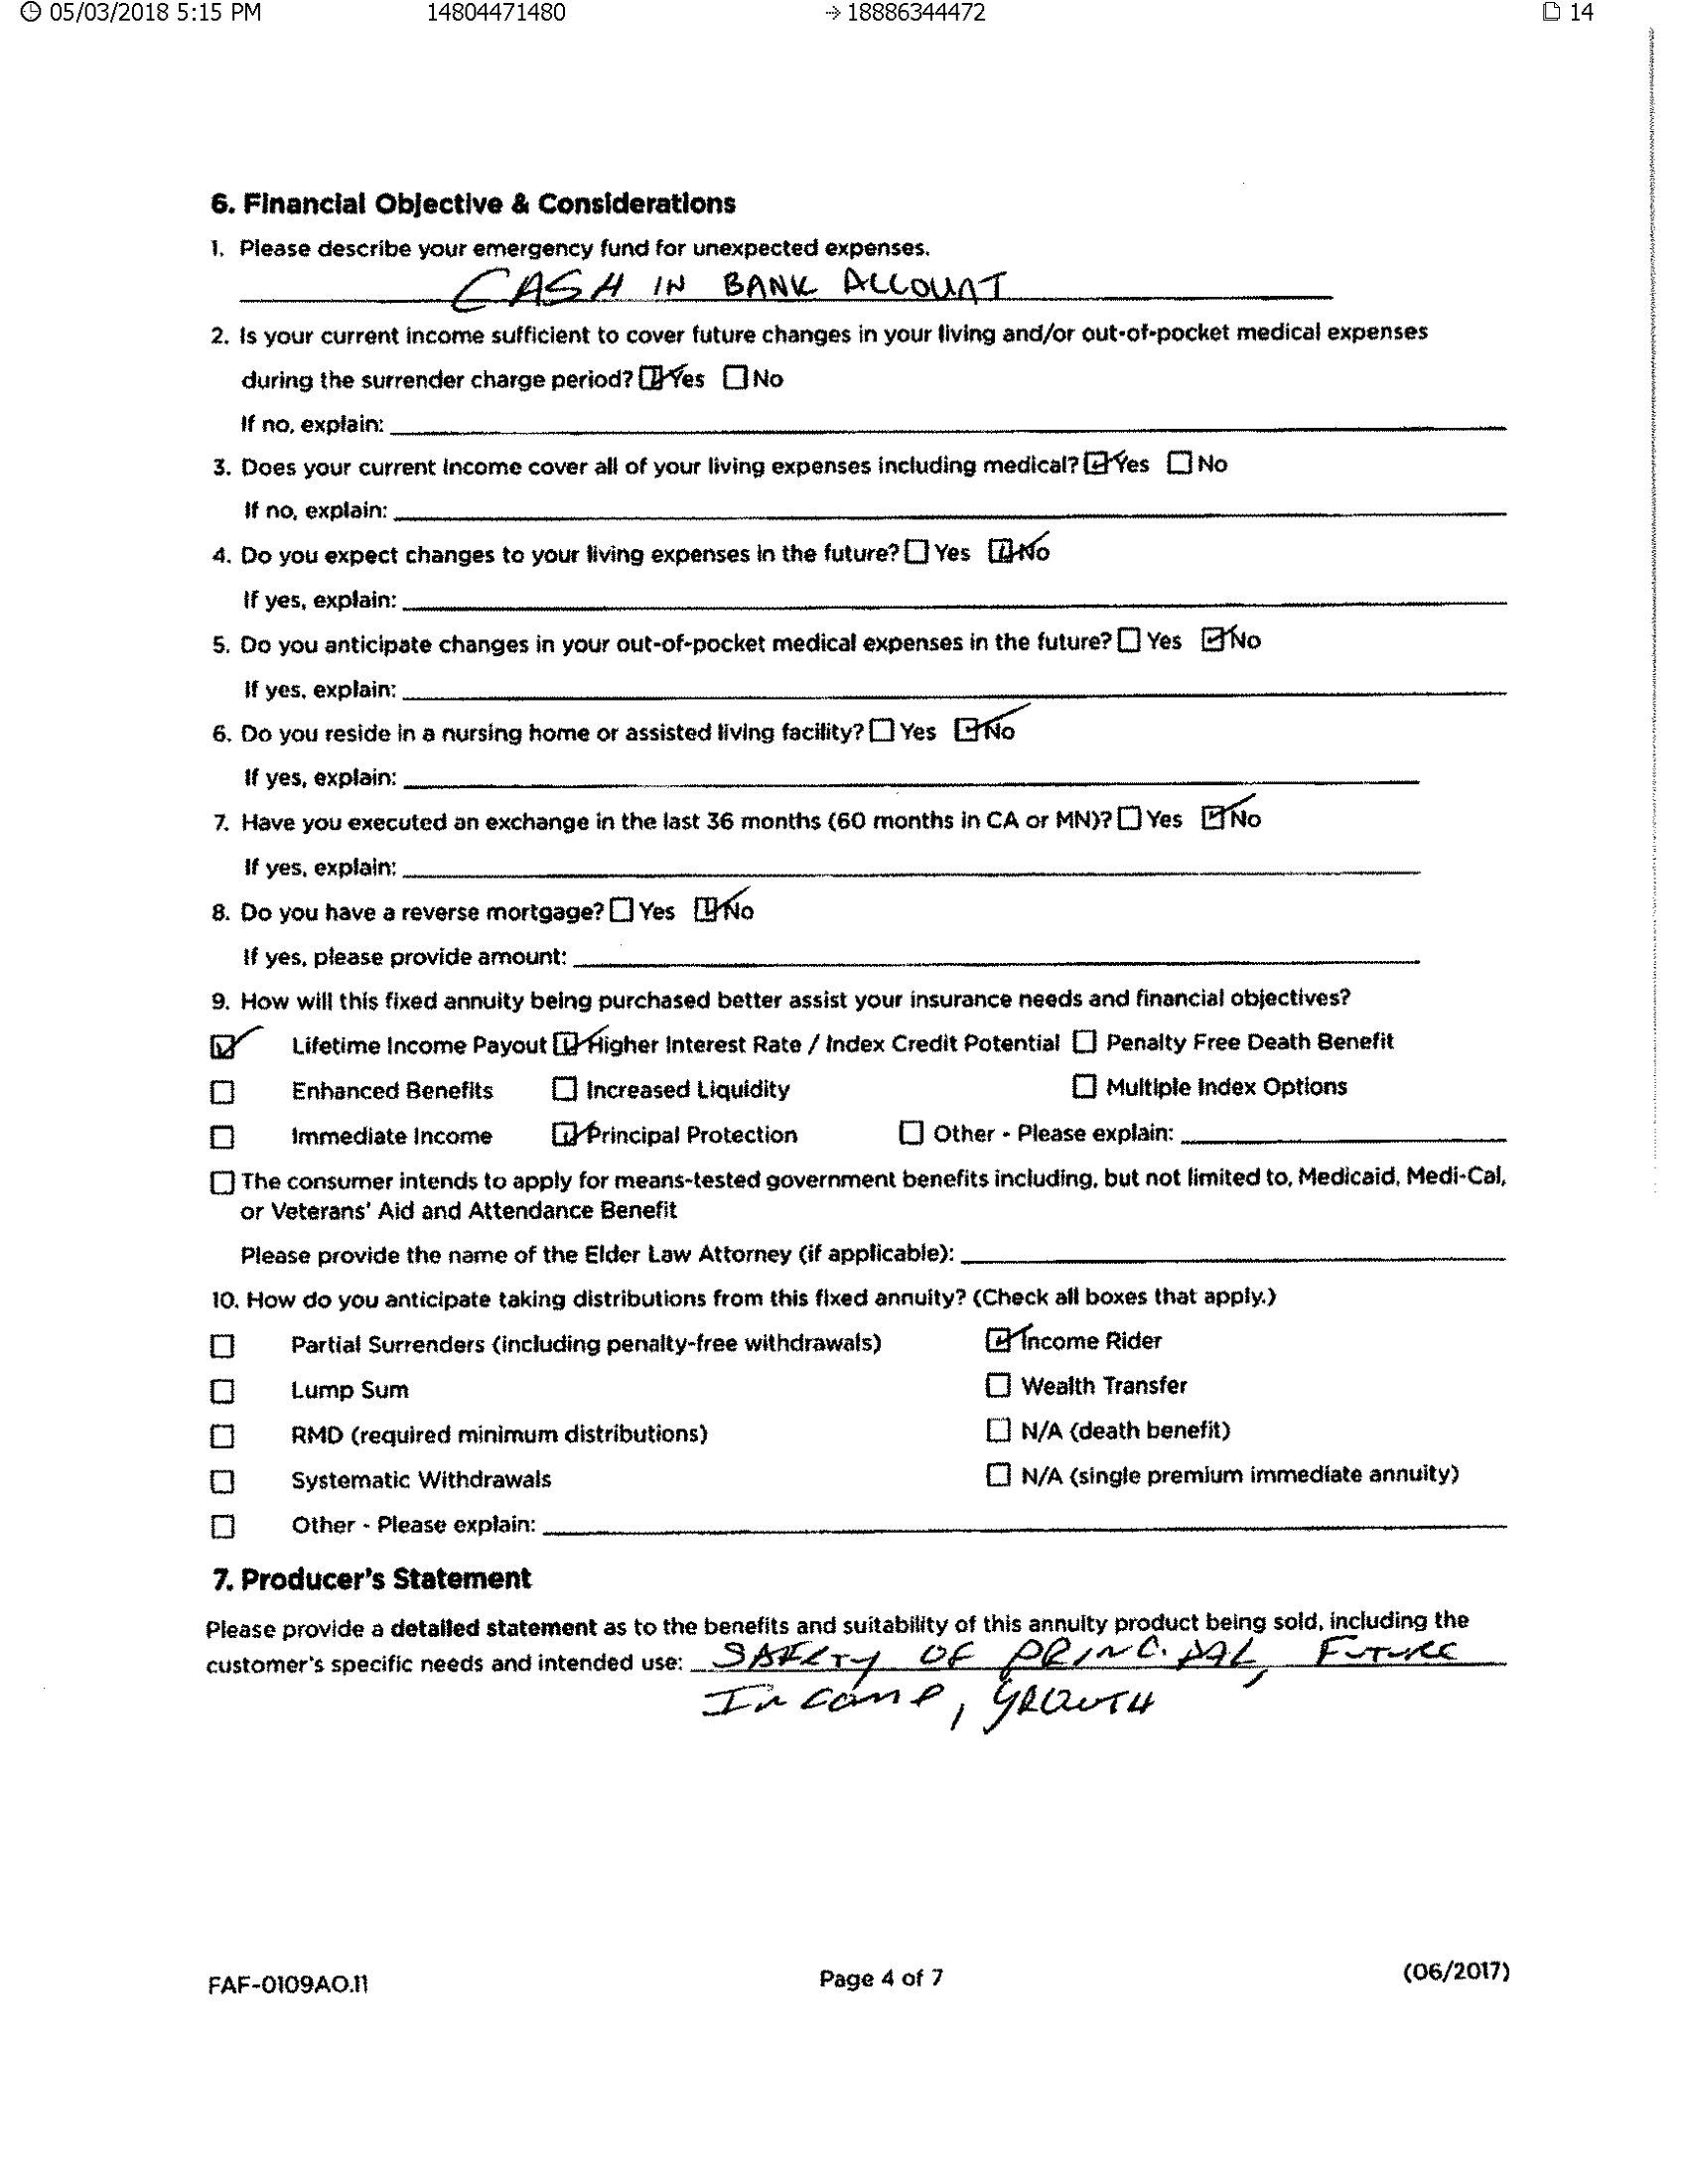 05/03/2018 5:15 PM 14804471480 → 18886344472 14
6. Financial Objective & Considerations
1. Please describe your emergency fund for unexpected expenses.
CASH IN BANK ACCOUNT
2. Is your current income sufficient to cover future changes in your living and/or out-of-pocket medical expenses
during the surrender charge period? ☑ Yes ☐ No
If no, explain:
3. Does your current income cover all of your living expenses including medical? ☑ Yes ☐ No
If no, explain:
4. Do you expect changes to your living expenses in the future? ☐ Yes ☑ No
If yes, explain:
5. Do you anticipate changes in your out-of-pocket medical expenses in the future? ☐ Yes ☑ No
If yes, explain:
6. Do you reside in a nursing home or assisted living facility? ☐ Yes ☑ No
If yes, explain:
7. Have you executed an exchange in the last 36 months (60 months in CA or MN)? ☐ Yes ☑ No
If yes, explain:
8. Do you have a reverse mortgage? ☐ Yes ☑ No
If yes, please provide amount:
9. How will this fixed annuity being purchased better assist your insurance needs and financial objectives?
☑ Lifetime Income Payout ☑ Higher Interest Rate / Index Credit Potential ☐ Penalty Free Death Benefit
☐ Enhanced Benefits ☐ Increased Liquidity ☐ Multiple Index Options
☐ Immediate Income ☑ Principal Protection ☐ Other - Please explain:
☐ The consumer intends to apply for means-tested government benefits including, but not limited to, Medicaid, Medi-Cal,
or Veterans' Aid and Attendance Benefit
Please provide the name of the Elder Law Attorney (if applicable):
10. How do you anticipate taking distributions from this fixed annuity? (Check all boxes that apply.)
☐ Partial Surrenders (including penalty-free withdrawals) ☑ Income Rider
☐ Lump Sum ☐ Wealth Transfer
☐ RMD (required minimum distributions) ☐ N/A (death benefit)
☐ Systematic Withdrawals ☐ N/A (single premium immediate annuity)
☐ Other - Please explain:
7. Producer's Statement
Please provide a detailed statement as to the benefits and suitability of this annuity product being sold, including the
customer's specific needs and intended use: SAFETY OF PRINCIPAL, FUTURE
INCOME, GROWTH
FAF-0109AO.11 Page 4 of 7 (06/2017)